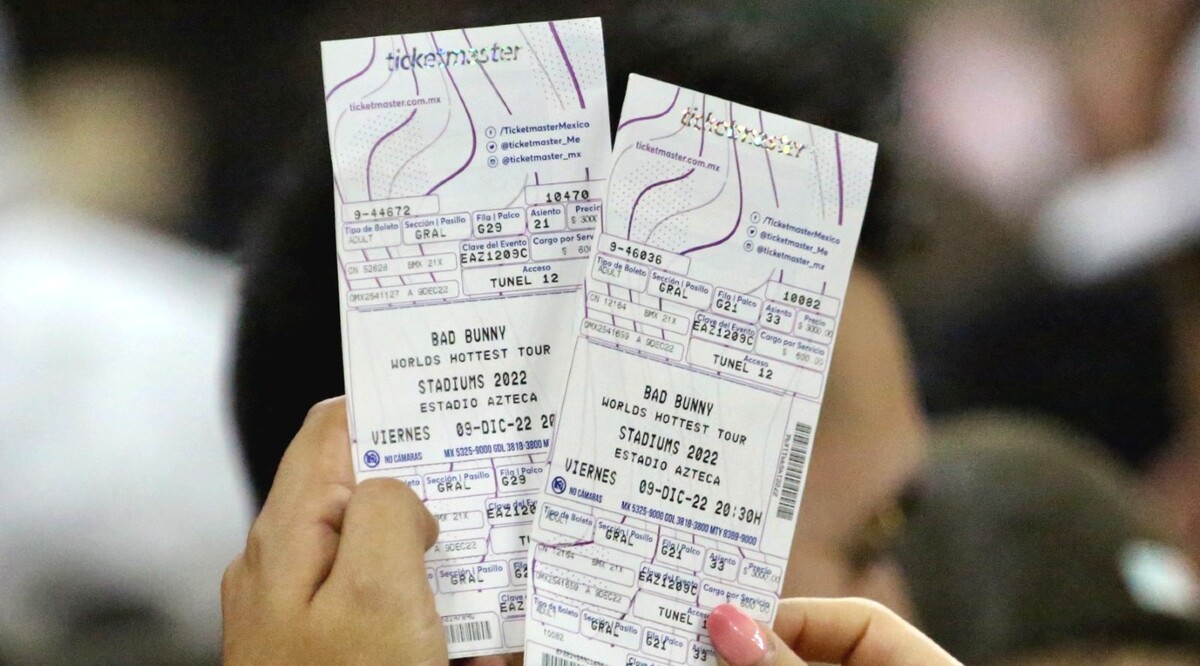 ticketmaster
ticketmaster.com.mx
/TicketmasterMexico
@ticketmaster_Me
@ticketmaster_mx
9-44672
10470
Tipo de Boleto Sección | Pasillo Fila | Palco Asiento Precio
ADULT GRAL G29 21 $ 3000
Clave del Evento Cargo por Servi
CN 52628 BMX 21X EAZ1209C $ 600
Acceso
OMX2541127 A 9DEC22 TUNEL 12
BAD BUNNY
WORLDS HOTTEST TOUR
STADIUMS 2022
ESTADIO AZTECA
VIERNES 09-DIC-22 20
NO CÁMARAS MX 5325-9000 GDL 3818-3800 MT
Sección | Pasillo Fila | Palco
GRAL G29
Clave del Ev
21X EAZ120
A 9DEC22
Sección | Pasillo
GRAL
Clave
EAZ
ticketmaster
ticketmaster.com.mx
/TicketmasterMexico
@ticketmaster_Me
@ticketmaster_mx
9-46036
10082
Tipo de Boleto Sección | Pasillo Fila | Palco Asiento Precio
ADULT GRAL G21 33 $ 3000.00
Clave del Evento Cargo por Servicio
CN 12164 BMX 21X EAZ1209C $ 600.00
Acceso
OMX2541659 A 9DEC22 TUNEL 12
BAD BUNNY
WORLDS HOTTEST TOUR
STADIUMS 2022
ESTADIO AZTECA
VIERNES 09-DIC-22 20:30H
NO CÁMARAS MX 5325-9000 GDL 3818-3800 MTY 8369-9000
Tipo de Boleto Sección | Pasillo Fila | Palco Asiento Precio
ADULT GRAL G21 33 $ 3000.00
Clave del Evento Cargo por Servicio
CN 12164 BMX 21X EAZ1209C $ 600.00
Acceso
OMX2541659 A 9DEC22 TUNEL 1
Tipo de Boleto Sección | Pasillo Fila | Palco Asiento
ADULT GRAL G21 33
10082